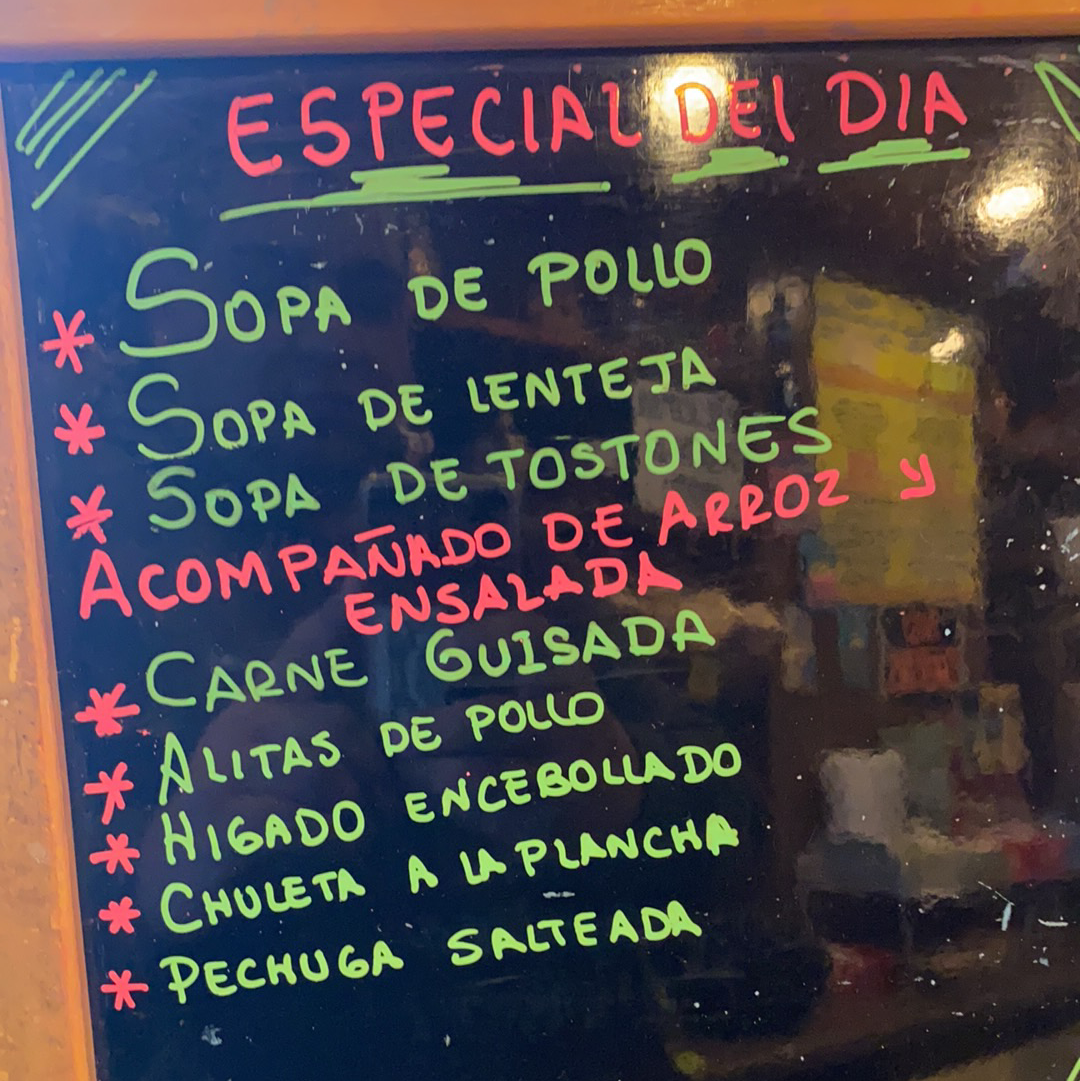 ESPECIAL DEL DIA
* SOPA DE POLLO
* SOPA DE LENTEJA
* SOPA DE TOSTONES
ACOMPAÑADO DE ARROZ Y
ENSALADA
* CARNE GUISADA
* ALITAS DE POLLO
* HIGADO ENCEBOLLADO
* CHULETA A LA PLANCHA
* PECHUGA SALTEADA